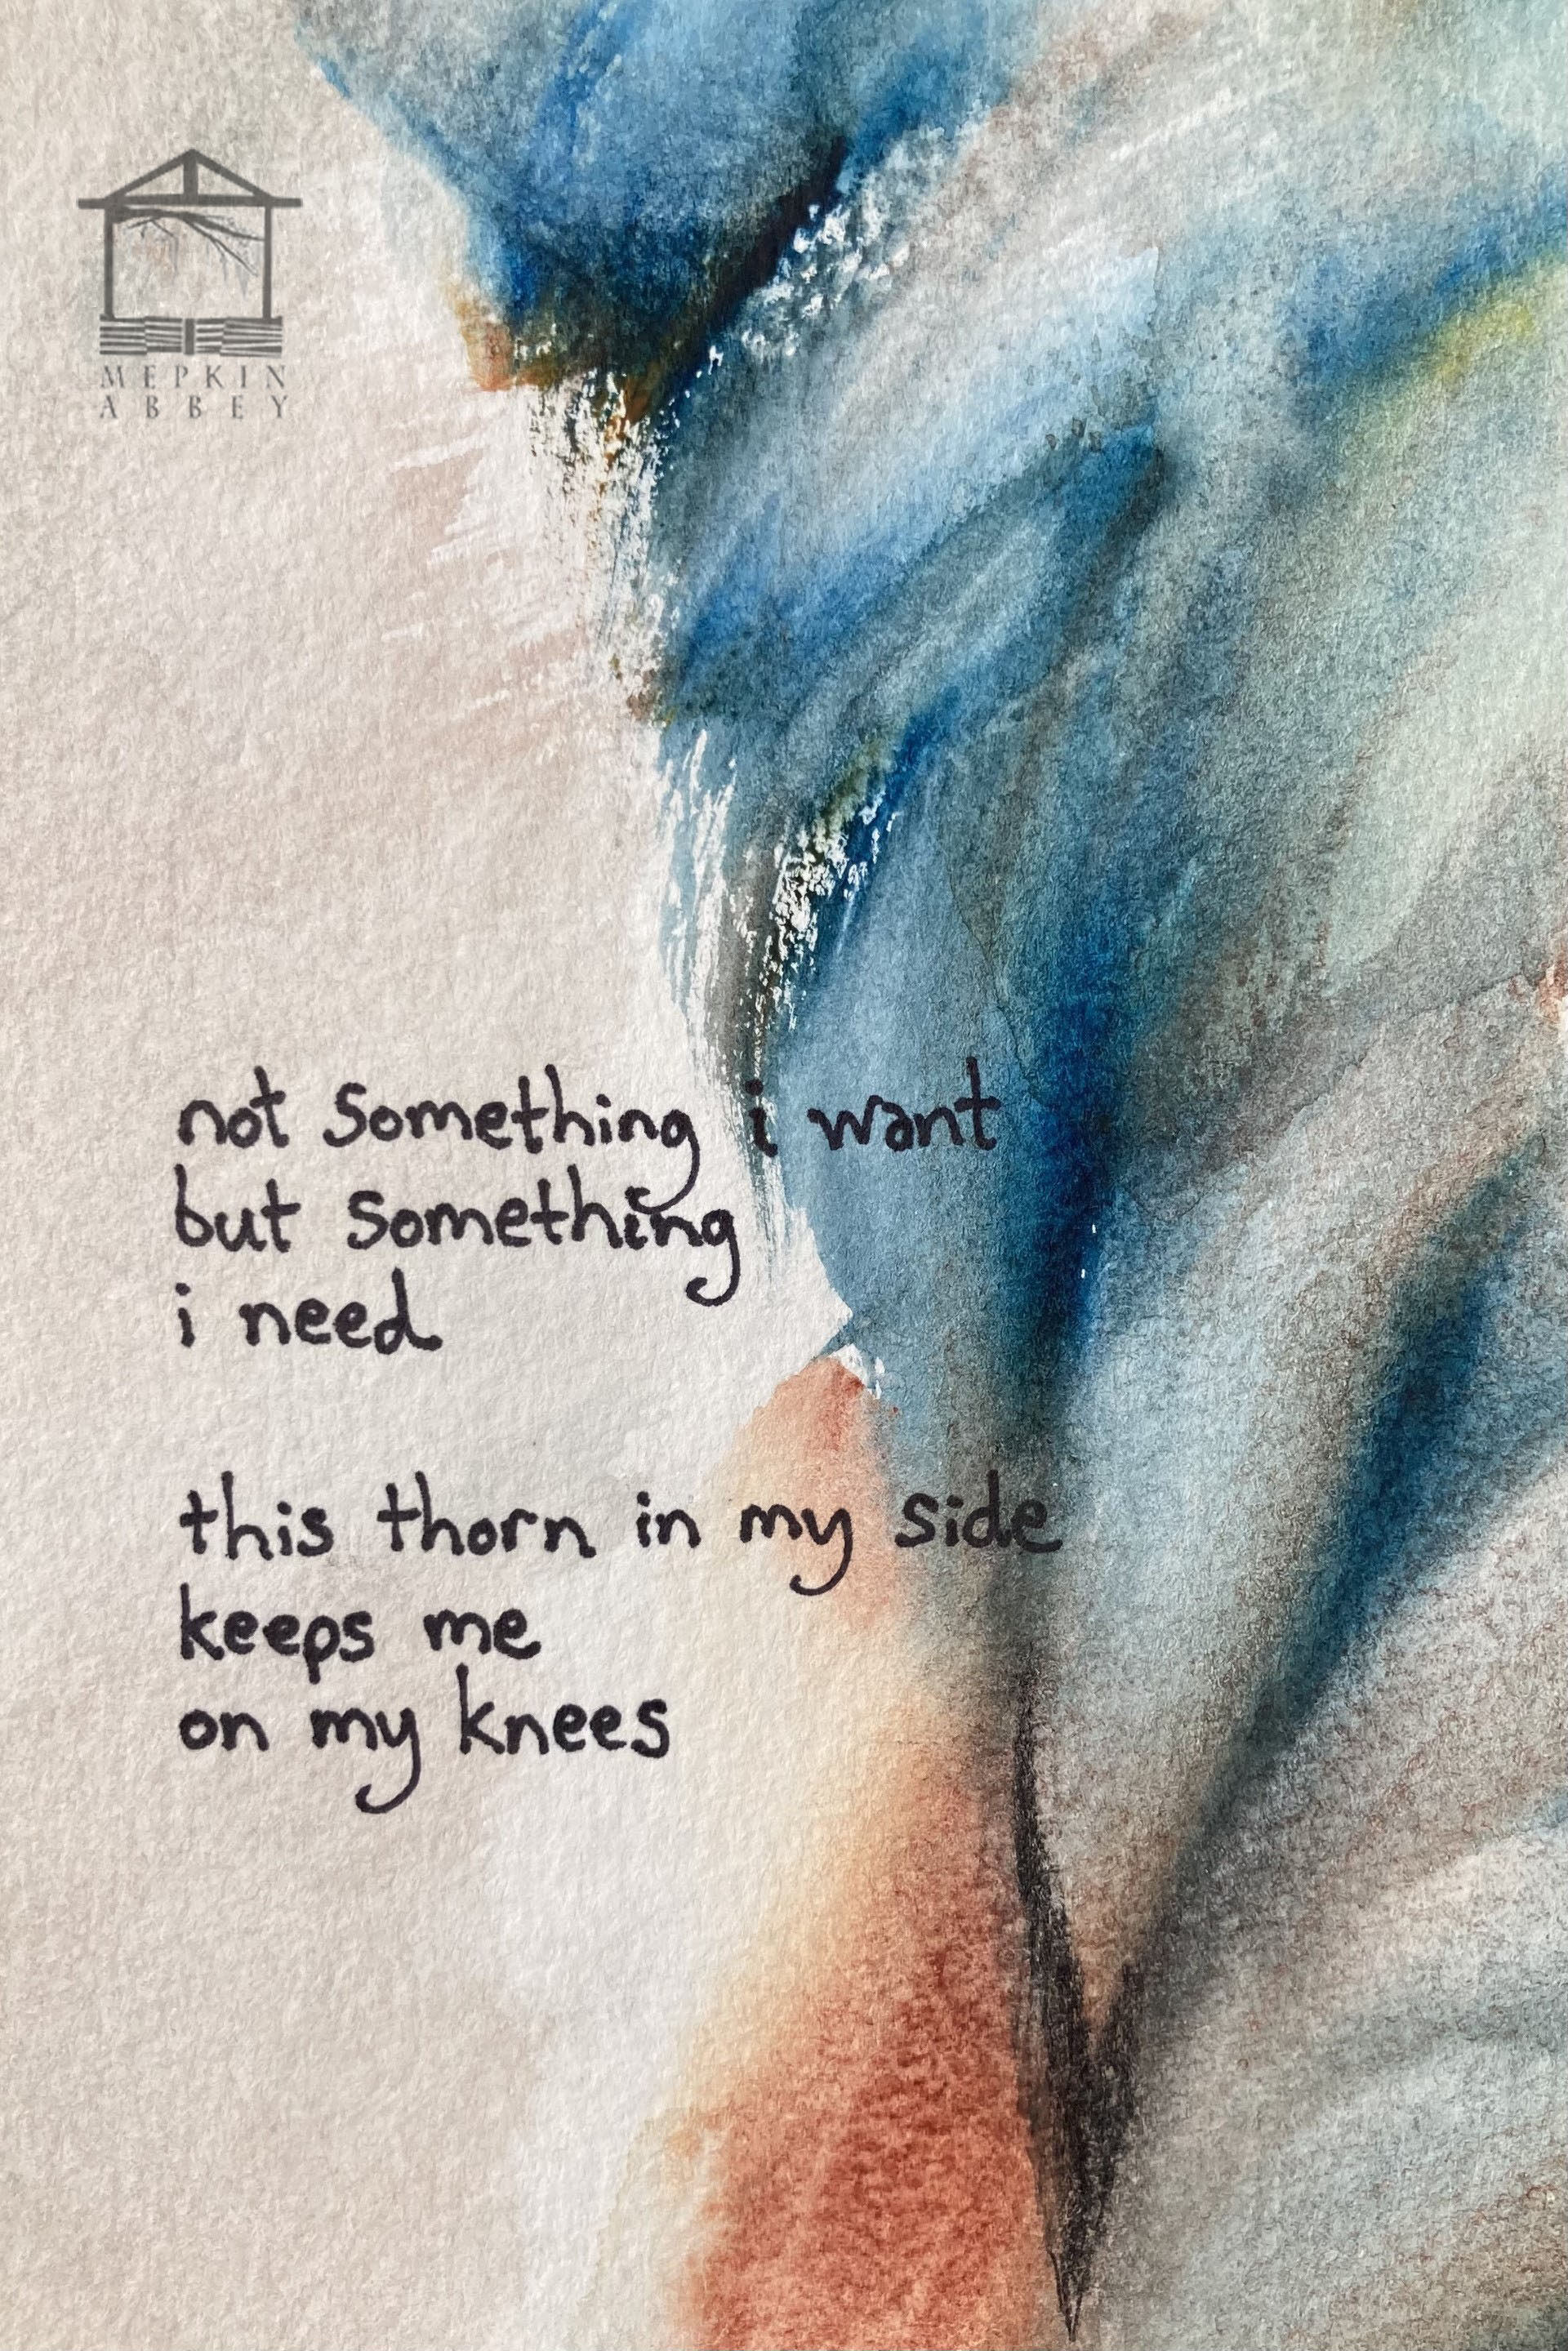 MEPKIN
ABBEY
not something i want
but something
i need
this thorn in my side
keeps me
on my knees